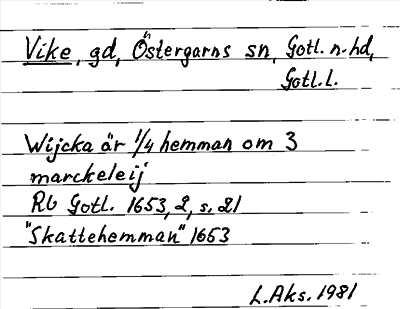 Vike, gd, Östergarns sn, Gotl. n. hd,
Gotl. l.
Wijcka är 1/4 hemman om 3
marckeleij
Rb Gotl. 1653, 2, s. 21
"Skattehemman" 1653
L. Aks. 1981